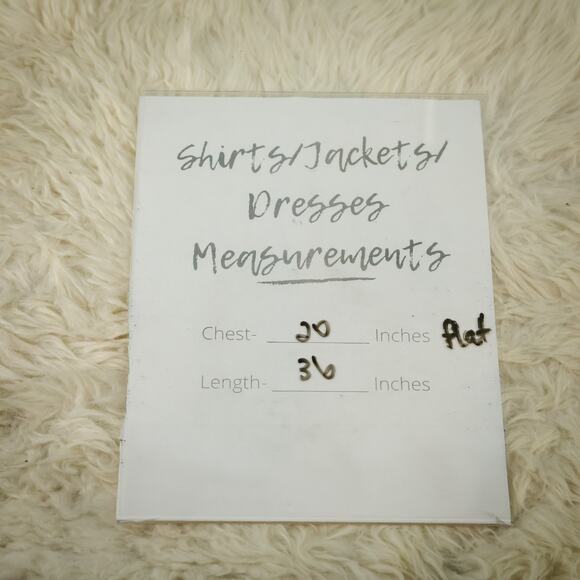 Shirts/Jackets/
Dresses
Measurements
Chest- 20 Inches flat
Length- 36 Inches